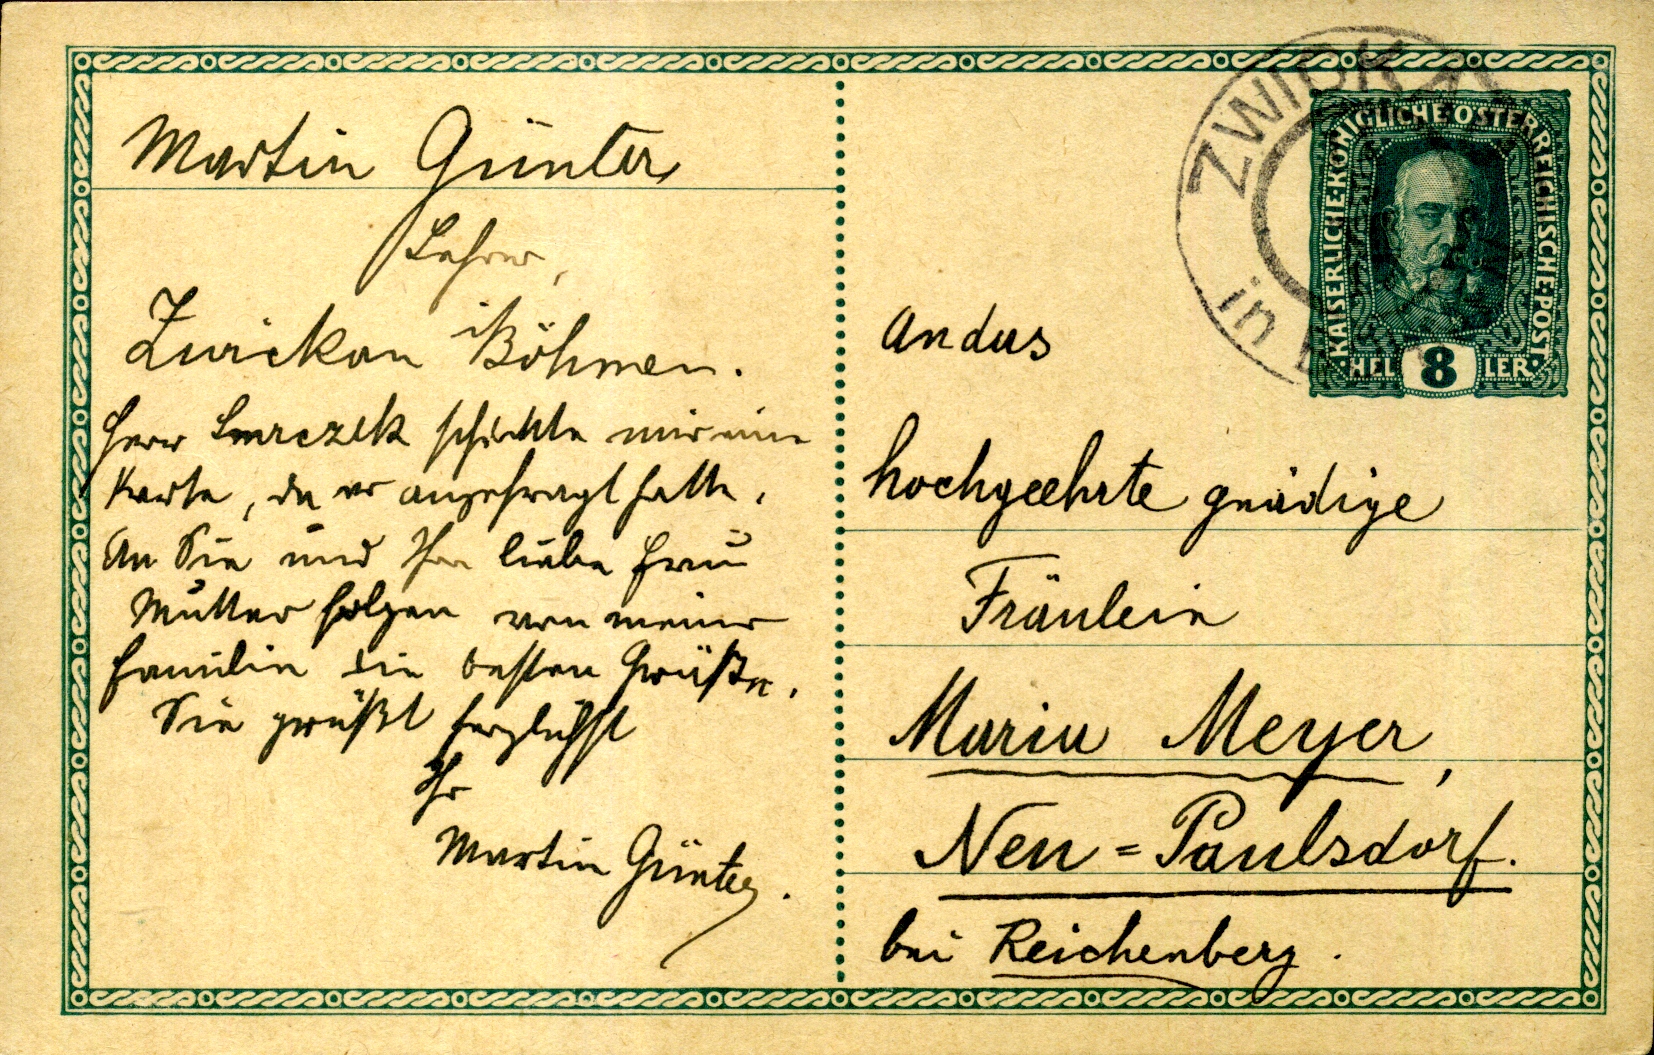 Martin Günter
Lehrer,
Zwickau i Böhmen.
Herr schickte mir eine
Karte, da er angefragt hatte.
An Sie und Ihre liebe Frau
Mutter folgen von meiner
Familie die besten Grüße.
Sie grüßt herzlichst
Ihr
Martin Günter.
ZWICKA
in B
KAISERLICHE·KÖNIGLICHE·ÖSTERREICHISCHE·POST
HEL 8 LER
An das
hochgeehrte gnädige
Fräulein
Maria Meyer,
Neu=Paulsdorf.
bei Reichenberg.